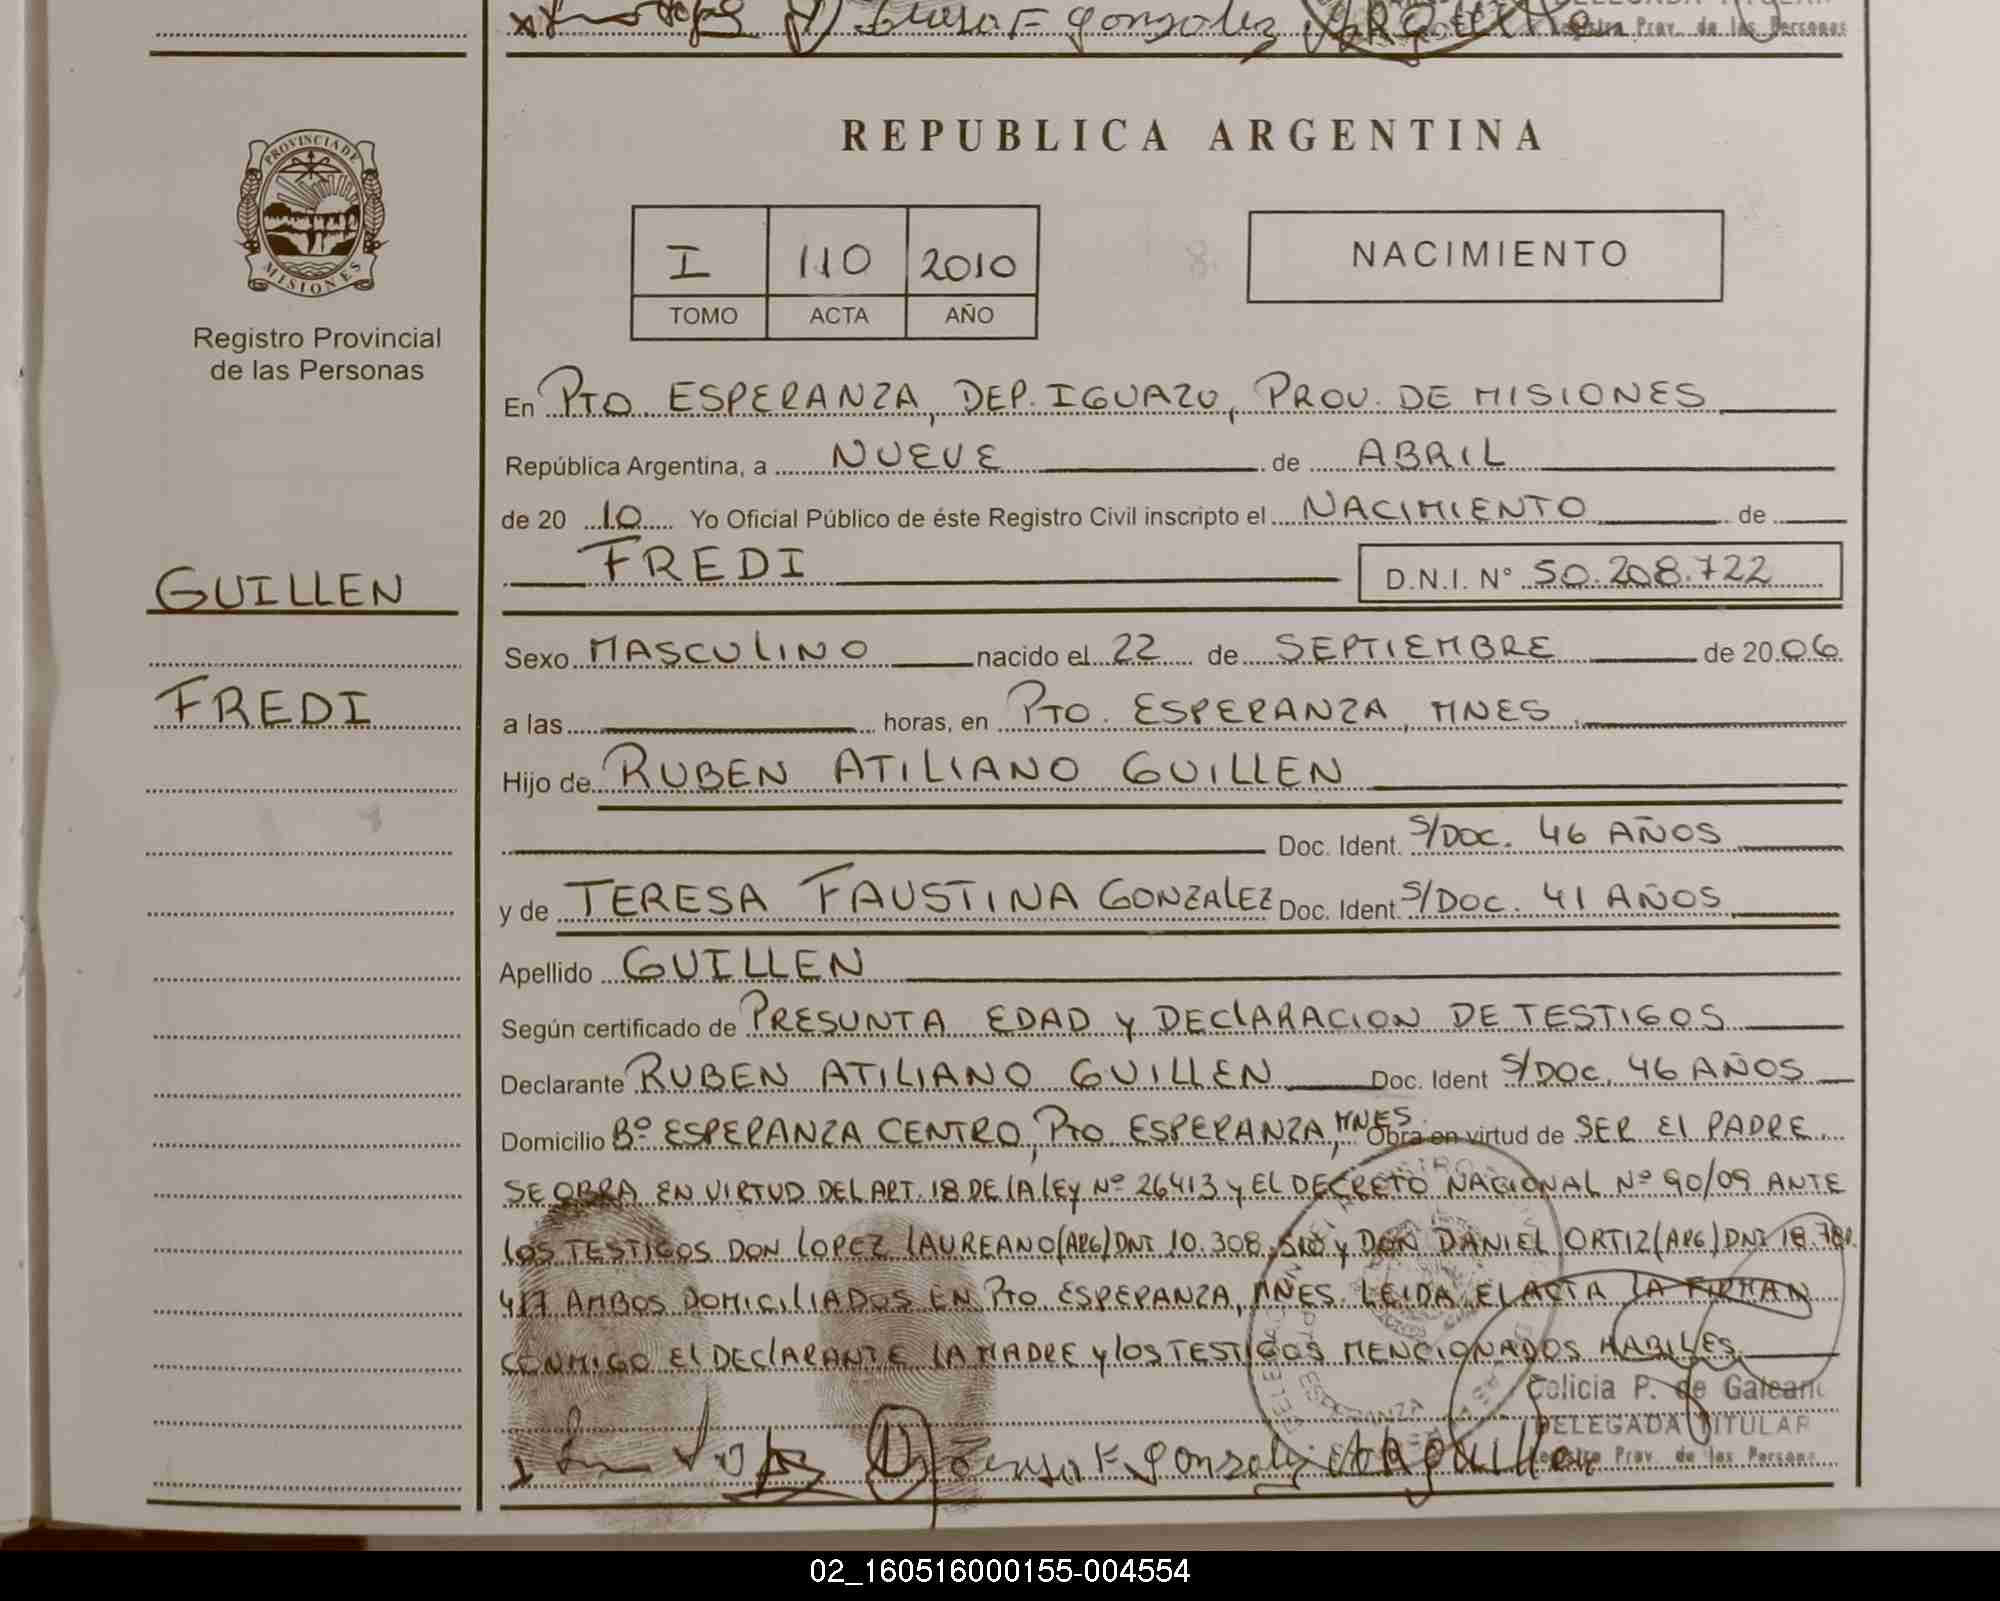 Teresa F Gonzalez
Registro Prov. de las Personas
REPUBLICA ARGENTINA
PROVINCIA DE
MISIONES
I 110 2010
TOMO ACTA AÑO
NACIMIENTO
Registro Provincial
de las Personas
En PTO ESPERANZA, DEP. IGUAZU, PROV. DE MISIONES
República Argentina, a NUEVE de ABRIL
de 20 10 Yo Oficial Público de éste Registro Civil inscripto el NACIMIENTO de
FREDI D.N.I. N° 50.208.722
GUILLEN
Sexo MASCULINO nacido el 22 de SEPTIEMBRE de 20 06
FREDI
a las horas, en PTO. ESPERANZA, MNES
Hijo de RUBEN ATILIANO GUILLEN
Doc. Ident. S/DOC. 46 AÑOS
y de TERESA FAUSTINA GONZALEZ Doc. Ident. S/DOC. 41 AÑOS
Apellido GUILLEN
Según certificado de PRESUNTA EDAD Y DECLARACION DE TESTIGOS
Declarante RUBEN ATILIANO GUILLEN Doc. Ident S/DOC. 46 AÑOS
Domicilio Bº ESPERANZA CENTRO, PTO ESPERANZA, MNES. Obra en virtud de SER El PADRE.
SE OBRA EN VIRTUD DEL ART. 18 DE lA lEY Nº 26413 Y EL DECRETO NACIONAL Nº 90/09 ANTE
lOS TESTIGOS DON lOPEZ lAUREANO (ARG) DNI 10.308, Y DON DANIEL ORTIZ (ARG) DNI 18.780.
417 AMBOS DOMICILIADOS EN PTO. ESPERANZA, MNES. LEIDA El ACTA lA FIRMAN
CONMIGO El DEClARANTE lA MADRE Y lOS TESTIGOS MENCIONADOS HABILES
Celicia P. de Galeano
DELEGADA TITULAR
Registro Prov. de las Personas
Teresa F. Gonzalez
02_160516000155-004554